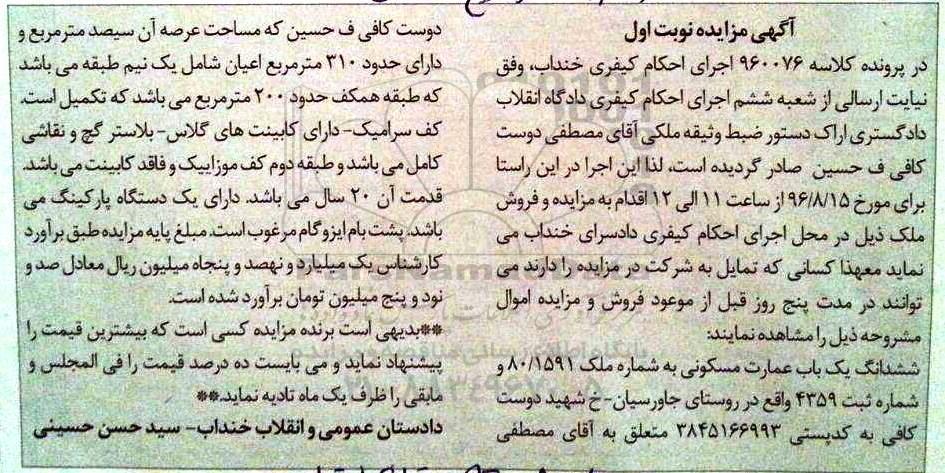 آگهی مزایده نوبت اول
در پرونده کلاسه ۹۶۰۰۷۶ اجرای احکام کیفری خنداب، وفق
نیابت ارسالی از شعبه ششم اجرای احکام کیفری دادگاه انقلاب
دادگستری اراک دستور ضبط وثیقه ملکی آقای مصطفی دوست
کافی ف حسین صادر گردیده است، لذا این اجرا در این راستا
برای مورخ ۹۶/۸/۱۵ از ساعت ۱۱ الی ۱۲ اقدام به مزایده و فروش
ملک ذیل در محل اجرای احکام کیفری دادسرای خنداب می
نماید معهذا کسانی که تمایل به شرکت در مزایده را دارند می
توانند در مدت پنج روز قبل از موعود فروش و مزایده اموال
مشروحه ذیل را مشاهده نمایند:
ششدانگ یک باب عمارت مسکونی به شماره ملک ۸۰/۱۵۹۱ و
شماره ثبت ۴۳۵۹ واقع در روستای جاورسیان-خ شهید دوست
کافی به کدپستی ۳۸۴۵۱۶۶۹۹۳ متعلق به آقای مصطفی
دوست کافی ف حسین که مساحت عرصه آن سیصد مترمربع و
دارای حدود ۳۱۰ مترمربع اعیان شامل یک نیم طبقه می باشد
که طبقه همکف حدود ۲۰۰ مترمربع می باشد که تکمیل است.
کف سرامیک- دارای کابینت های گلاس- بلاستر گچ و نقاشی
کامل می باشد و طبقه دوم کف موزاییک و فاقد کابینت می باشد.
قدمت آن ۲۰ سال می باشد. دارای یک دستگاه پارکینگ می
باشد. پشت بام ایزوگام مرغوب است. مبلغ پایه مزایده طبق برآورد
کارشناس یک میلیارد و نهصد و پنجاه میلیون ریال معادل صد و
نود و پنج میلیون تومان برآورد شده است.
**بدیهی است برنده مزایده کسی است که بیشترین قیمت را
پیشنهاد نماید و می بایست ده درصد قیمت را فی المجلس و
مابقی را ظرف یک ماه تادیه نماید.**
دادستان عمومی و انقلاب خنداب- سید حسن حسینی